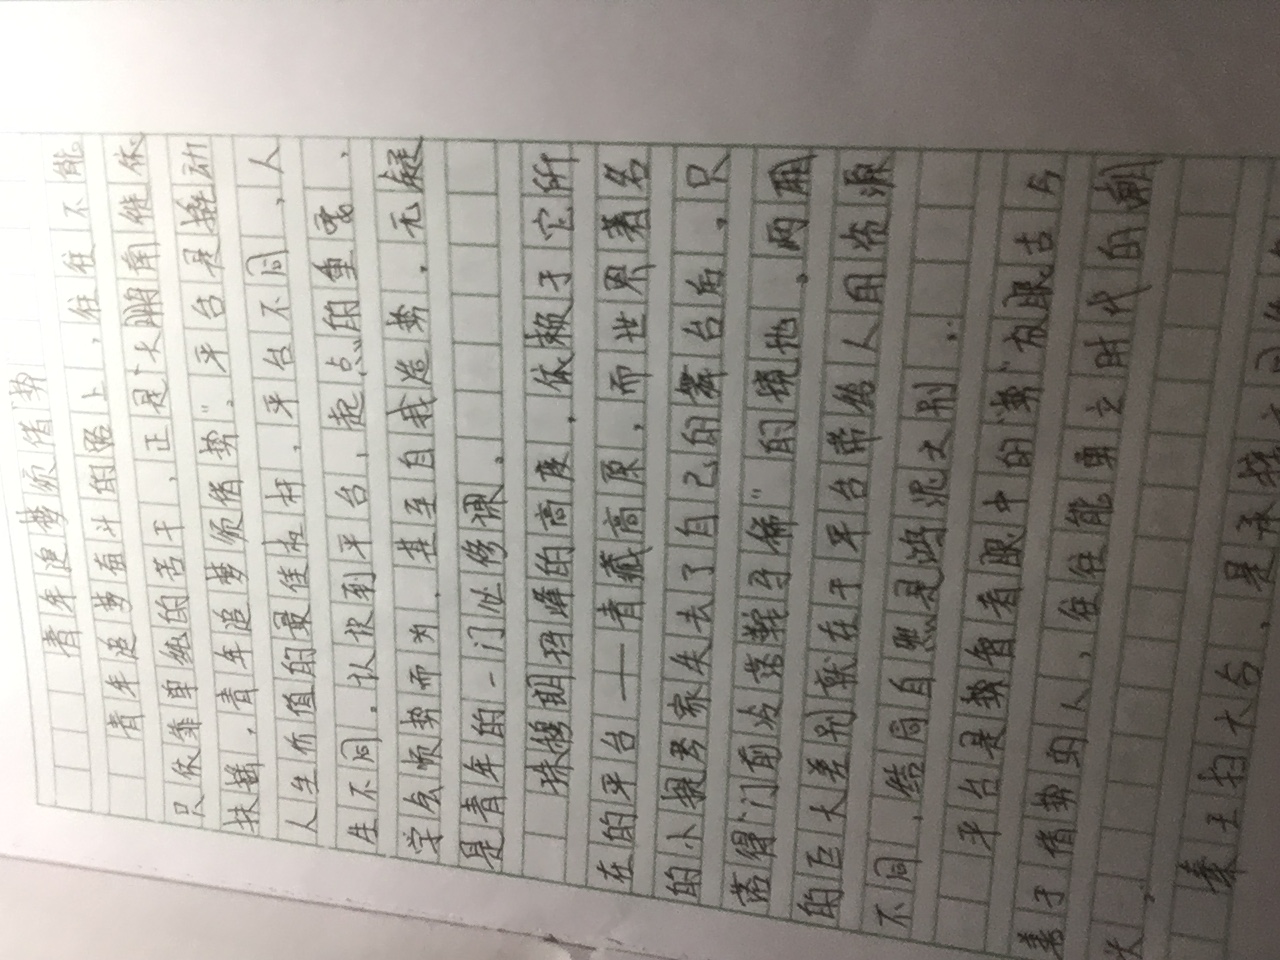 青年追梦须借势
青年追梦奋斗的路上，往往不能
只依靠单纯的苦干，正是"大鹏
扶摇，青年追梦须借势"。平台是撬动
人生价值的最佳杠杆，平台不同，人
生不同。认识到平台、起点的重要，
学会顺势而为，甚至自我造势，无疑
是青年的一门必修课。
珠穆朗玛峰的高度，依赖于它所
在的平台——青藏高原，而世界著名
的小提琴家失去了自己的舞台后，只
落得"门前冷落鞍马稀"的境地。两
的巨大差别就在于平台带给人用资源
不同，结局自然是鸿泥之别。
平台是势智者眼中的"势"放眼古今
善于借势的人，往往能勇立时代的潮
头。
秦王扫六合，是承